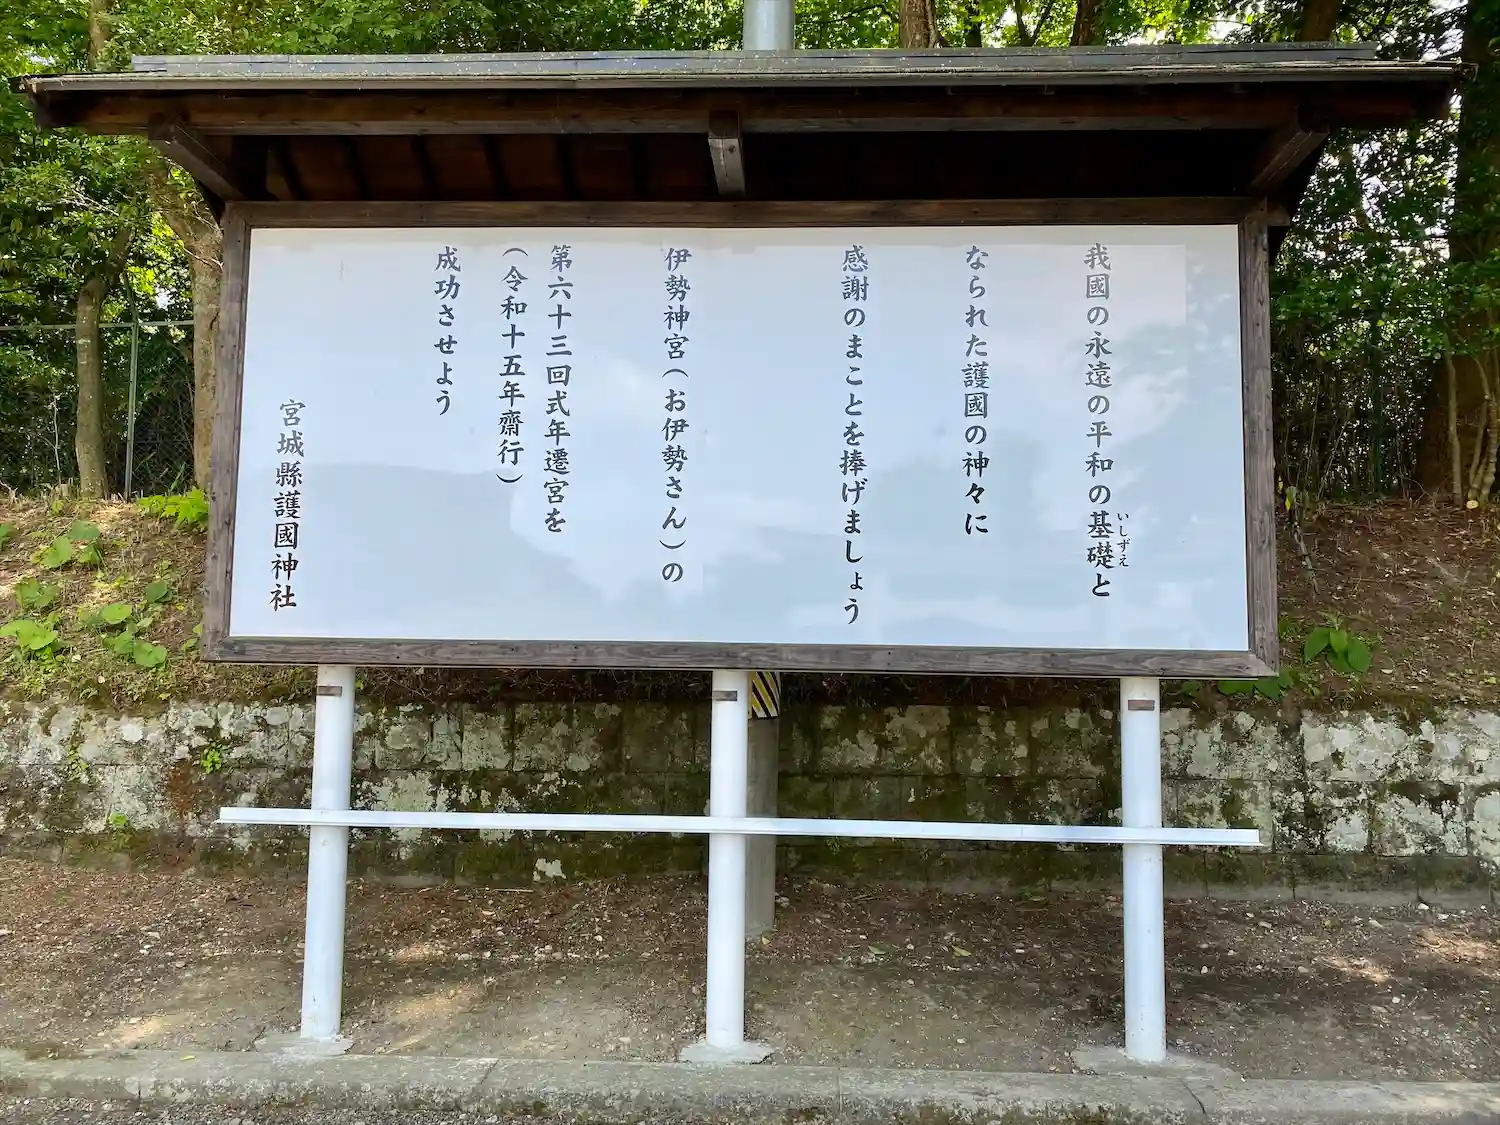 我國の永遠の平和の基礎と
いしずえ
なられた護國の神々に
感謝のまことを捧げましょう
伊勢神宮(お伊勢さん)の
第六十三回式年遷宮を
(令和十五年齋行)
成功させよう
宮城縣護國神社